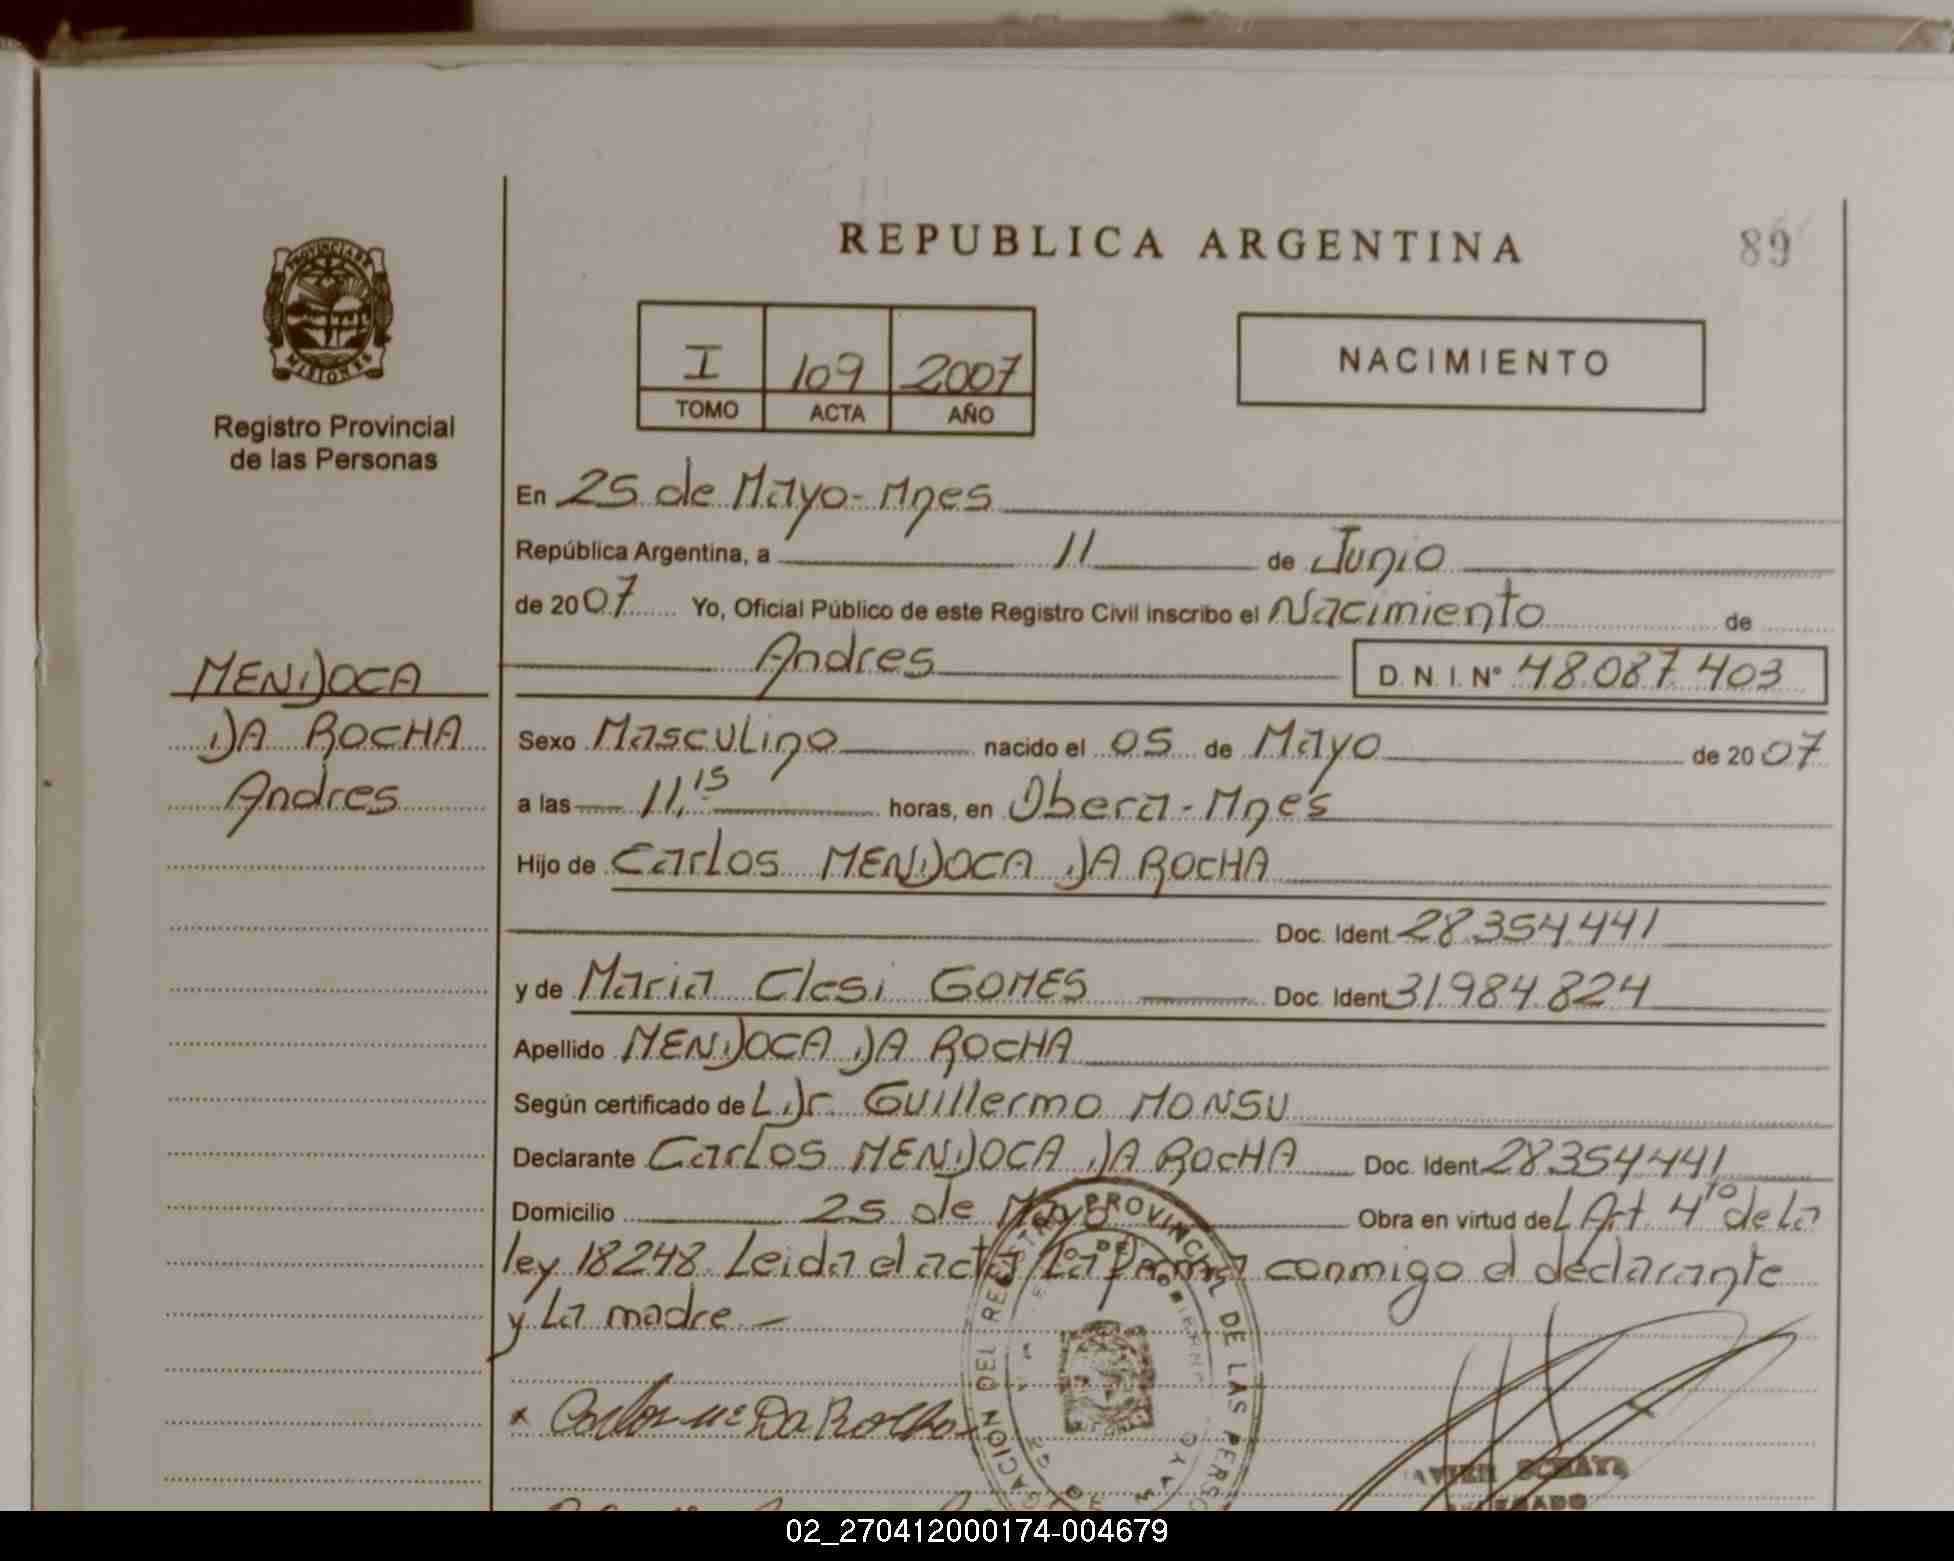 REPUBLICA ARGENTINA
89
PROVINCIA DE
MISIONES
Registro Provincial
de las Personas
I 109 2007
TOMO ACTA AÑO
NACIMIENTO
En 25 de Mayo - Mnes
República Argentina, a 11 de Junio
de 2007 Yo, Oficial Público de este Registro Civil inscribo el Nacimiento de
Andres D. N. I. N° 48.087.403
MENDOCA
DA ROCHA
Andres
Sexo Masculino nacido el 05 de Mayo de 2007
a las 11,15 horas, en Obera - Mnes
Hijo de Carlos MENDOCA DA ROCHA
Doc. Ident 28.354.441
y de Maria Clesi GOMES Doc. Ident 31.984.824
Apellido MENDOCA DA ROCHA
Según certificado del Dr. Guillermo MONSU
Declarante Carlos MENDOCA DA ROCHA Doc. Ident 28354441
Domicilio 25 de Mayo Obra en virtud del Art. 4to de la
ley 18248. Leida el acta la firma conmigo el declarante
y la madre
x Carlos Me Da Rocha
DEL REGISTRO PROVINCIAL DE LAS PERSO
DE MAYO
02_270412000174-004679